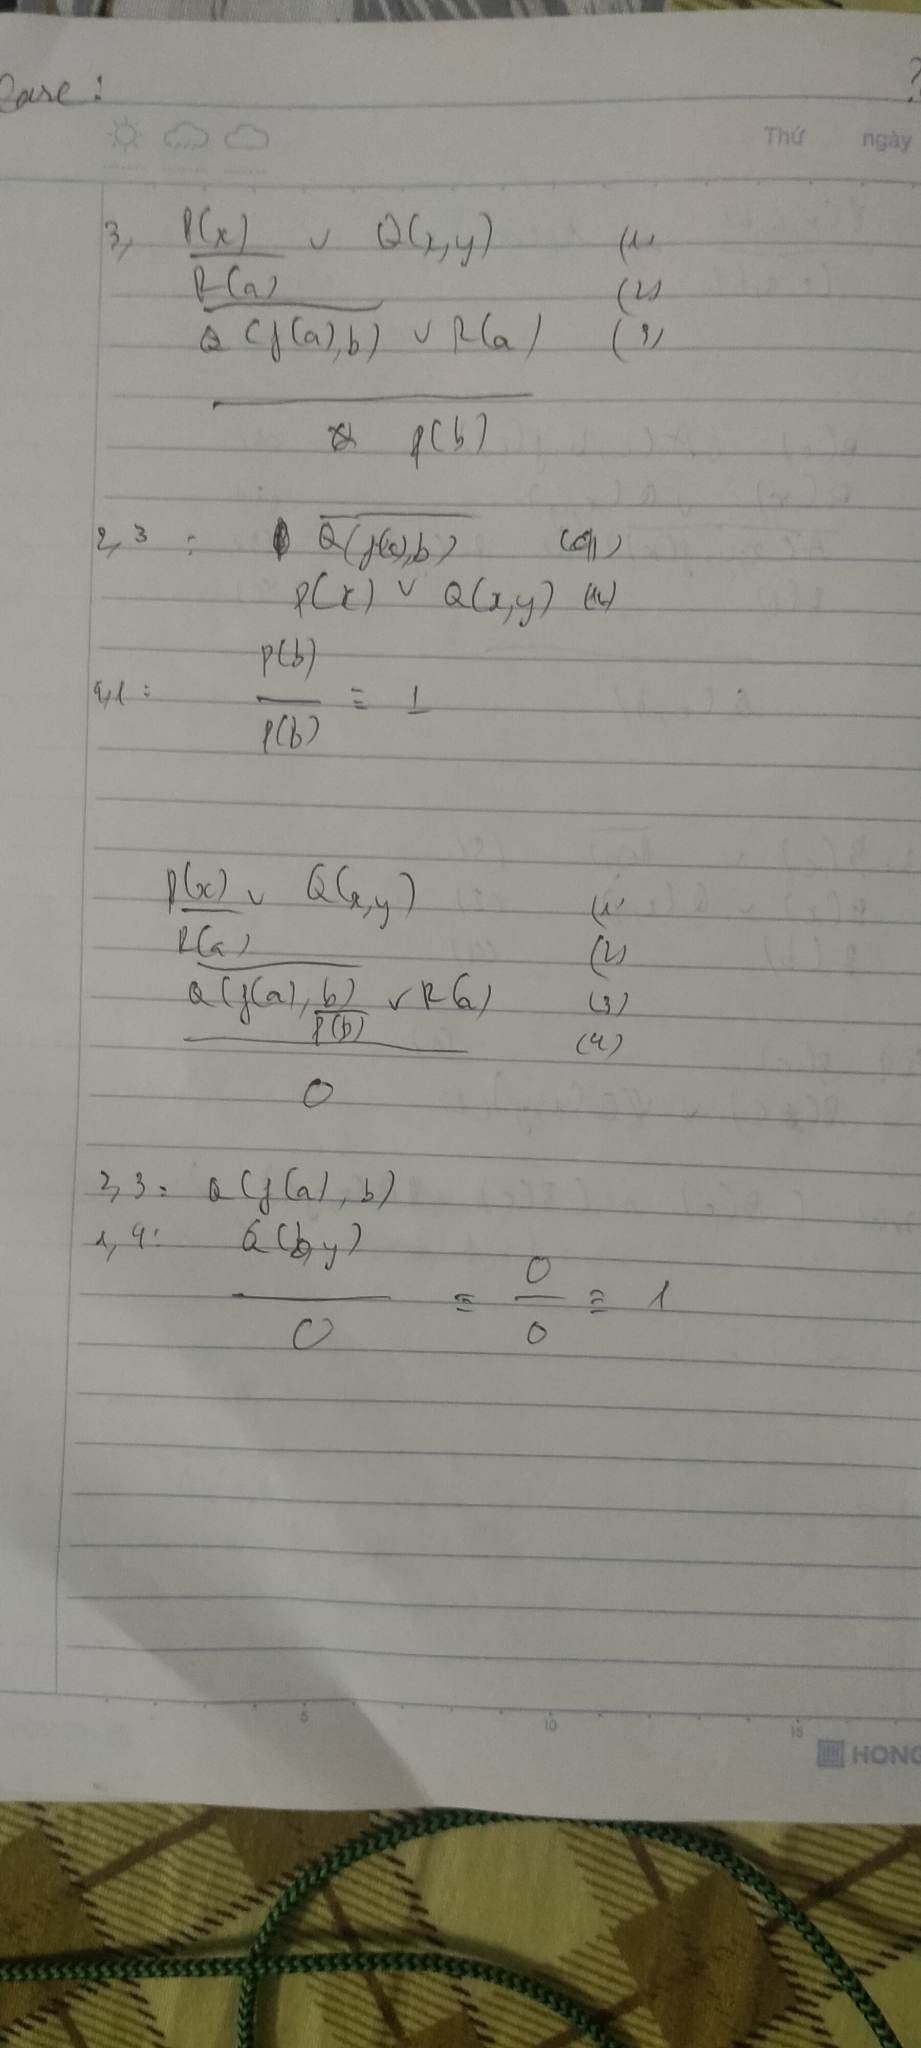 Thứ ngày
3, P(x) ∨ Q(x,y) (1)
R̅(̅a̅)̅ (2)
Q̅(̅f̅(̅a̅)̅,̅b̅)̅ ∨ R(a) (3)
P(b)
2,3 : Q̅(̅f̅(̅a̅)̅,̅b̅)̅ (4)
P(x) ∨ Q(x,y) (1)
P(b)
4,1 : ≡ 1
P(b)
P(x) ∨ Q(x,y) (1)
R̅(̅a̅)̅ (2)
Q̅(̅f̅(̅a̅)̅,̅b̅)̅ ∨ R(a) (3)
P̅(̅b̅)̅ (4)
0
2,3: Q(f(a),b)
1,4: Q(b,y)
0
≡ ≡ 1
0 0
5 10 15
HONG